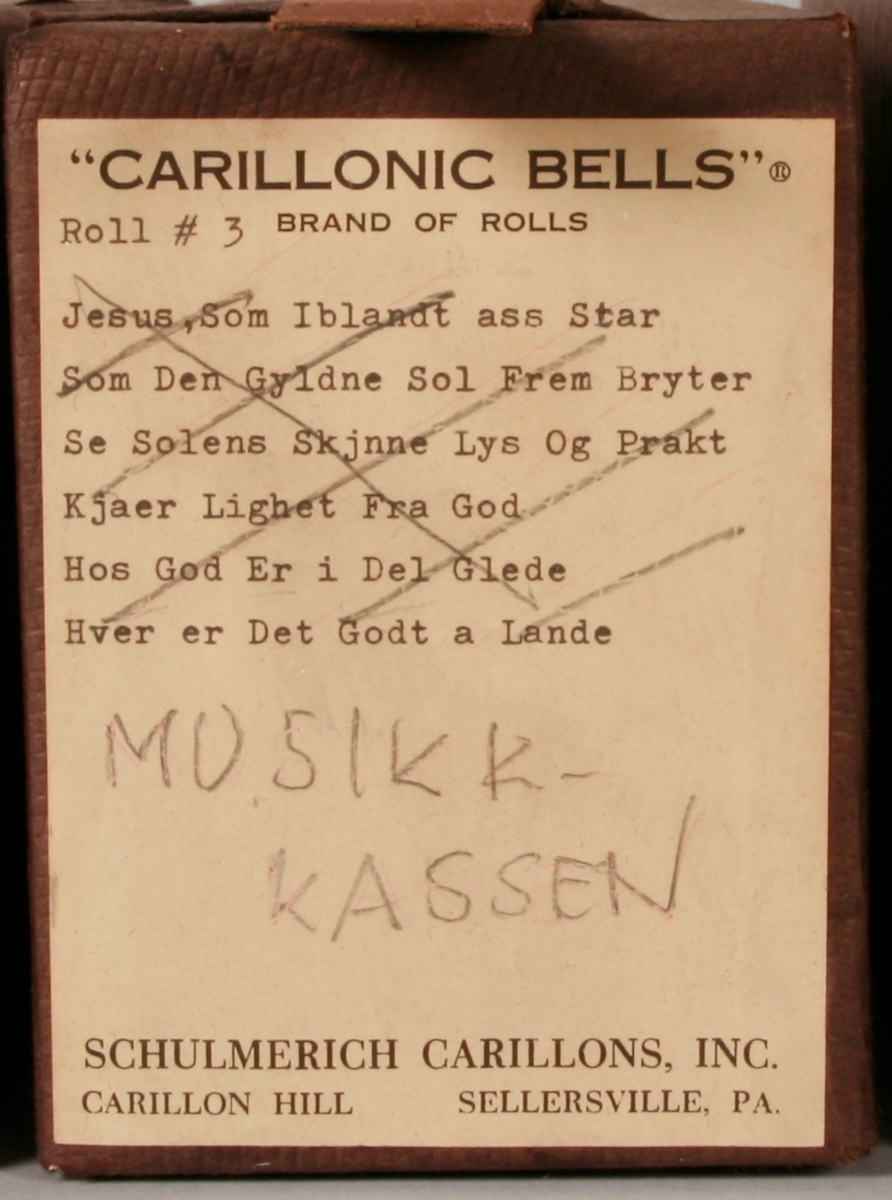 “CARILLONIC BELLS”®
Roll # 3 BRAND OF ROLLS
Jesus,Som Iblandt ass Star
Som Den Gyldne Sol Frem Bryter
Se Solens Skjnne Lys Og Prakt
Kjaer Lighet Fra God
Hos God Er i Del Glede
Hver er Det Godt a Lande
MUSIKK-
KASSEN
SCHULMERICH CARILLONS, INC.
CARILLON HILL SELLERSVILLE, PA.